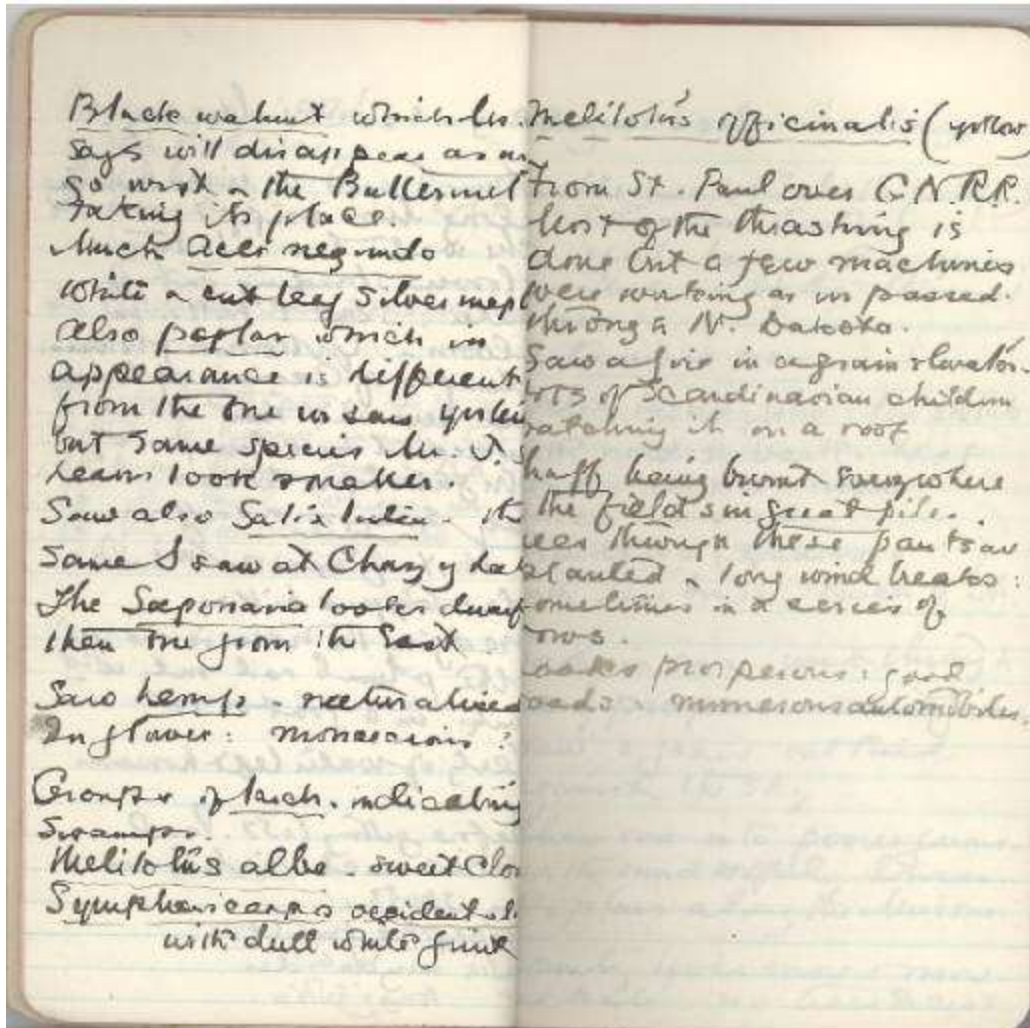 Black walnut which Mr.
says will disappear as we
go west & the Butternut
taking its place.
Much Acer negundo
White & cut leaf Silver mapl
also poplar which in
appearance is different
from the one we saw yester
but same species Mr. J. s
leaves look smaller.
Saw also Salix lutea. the
same I saw at Chazy La
The Saponaria looks dwarf
then one from the East
Saw hemp - naturalized
In flower: monoecious?
Groups of larch. indicating
Swamps.
Melilotus alba sweet Clo
Symphoricarpos occidentalis
with dull white fruit
Melilotus officinalis (yellow)
From St. Paul over G.N.R.R.
Most of the thrashing is
done but a few machines
were working as we passed.
through N. Dakota.
Saw a fire in a grain elevator.
ots of Scandinavian children
atching it on a roof
haff being burnt everywhere
the fields in great pile.
ees through these parts are
planted in long wind breaks:
ometimes in a series of
ows.
ooks prosperous: good
oads & numerous automobiles.